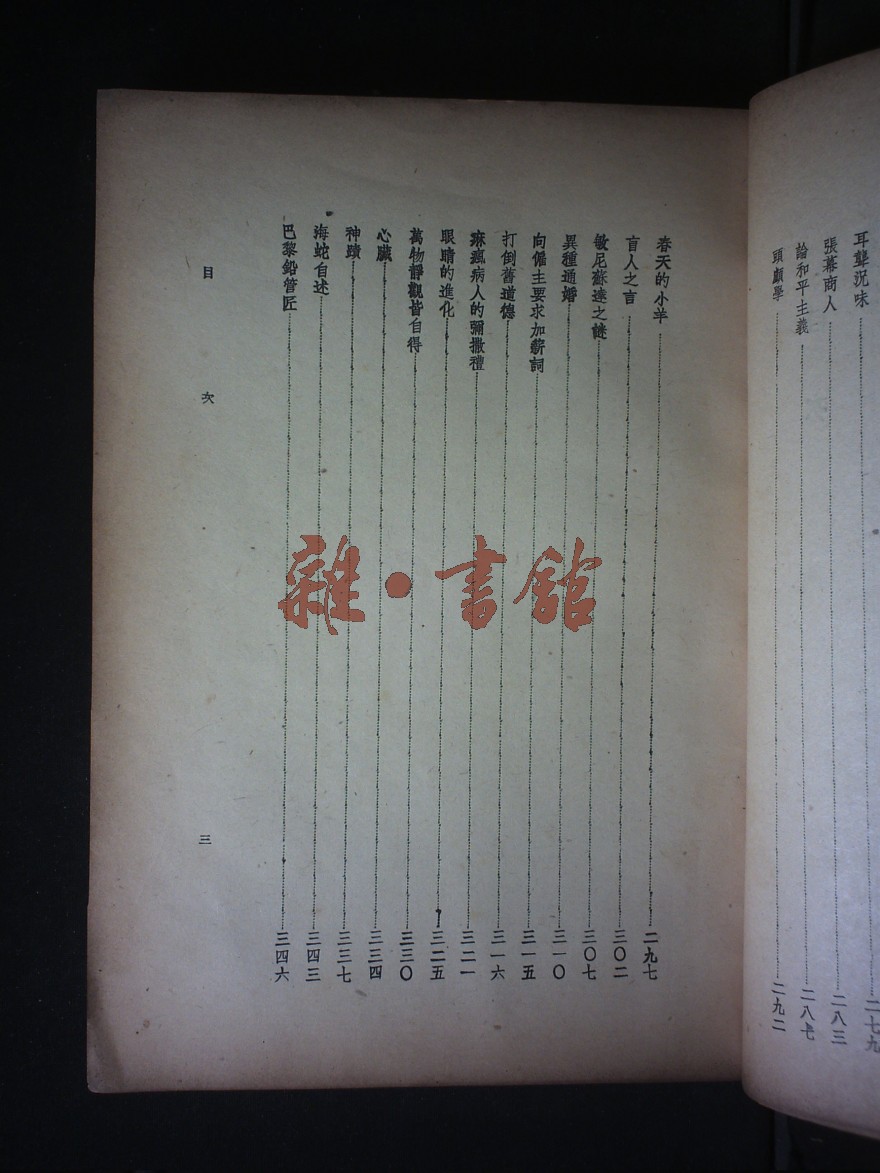 耳聾況味……二七九
張幕商人……二八三
論和平主義……二八七
頭顱學……二九二
春天的小羊……二九七
盲人之言……三〇二
敏尼蘇達之謎……三〇七
異種通婚……三一〇
向僱主要求加薪詞……三一五
打倒舊道德……三一六
麻瘋病人的彌撒禮……三二一
眼睛的進化……三二五
萬物靜觀皆自得……三三〇
心臟……三三四
神蹟……三三七
海蛇自述……三四三
巴黎鉛管匠……三四六
目次
三
雜·書館